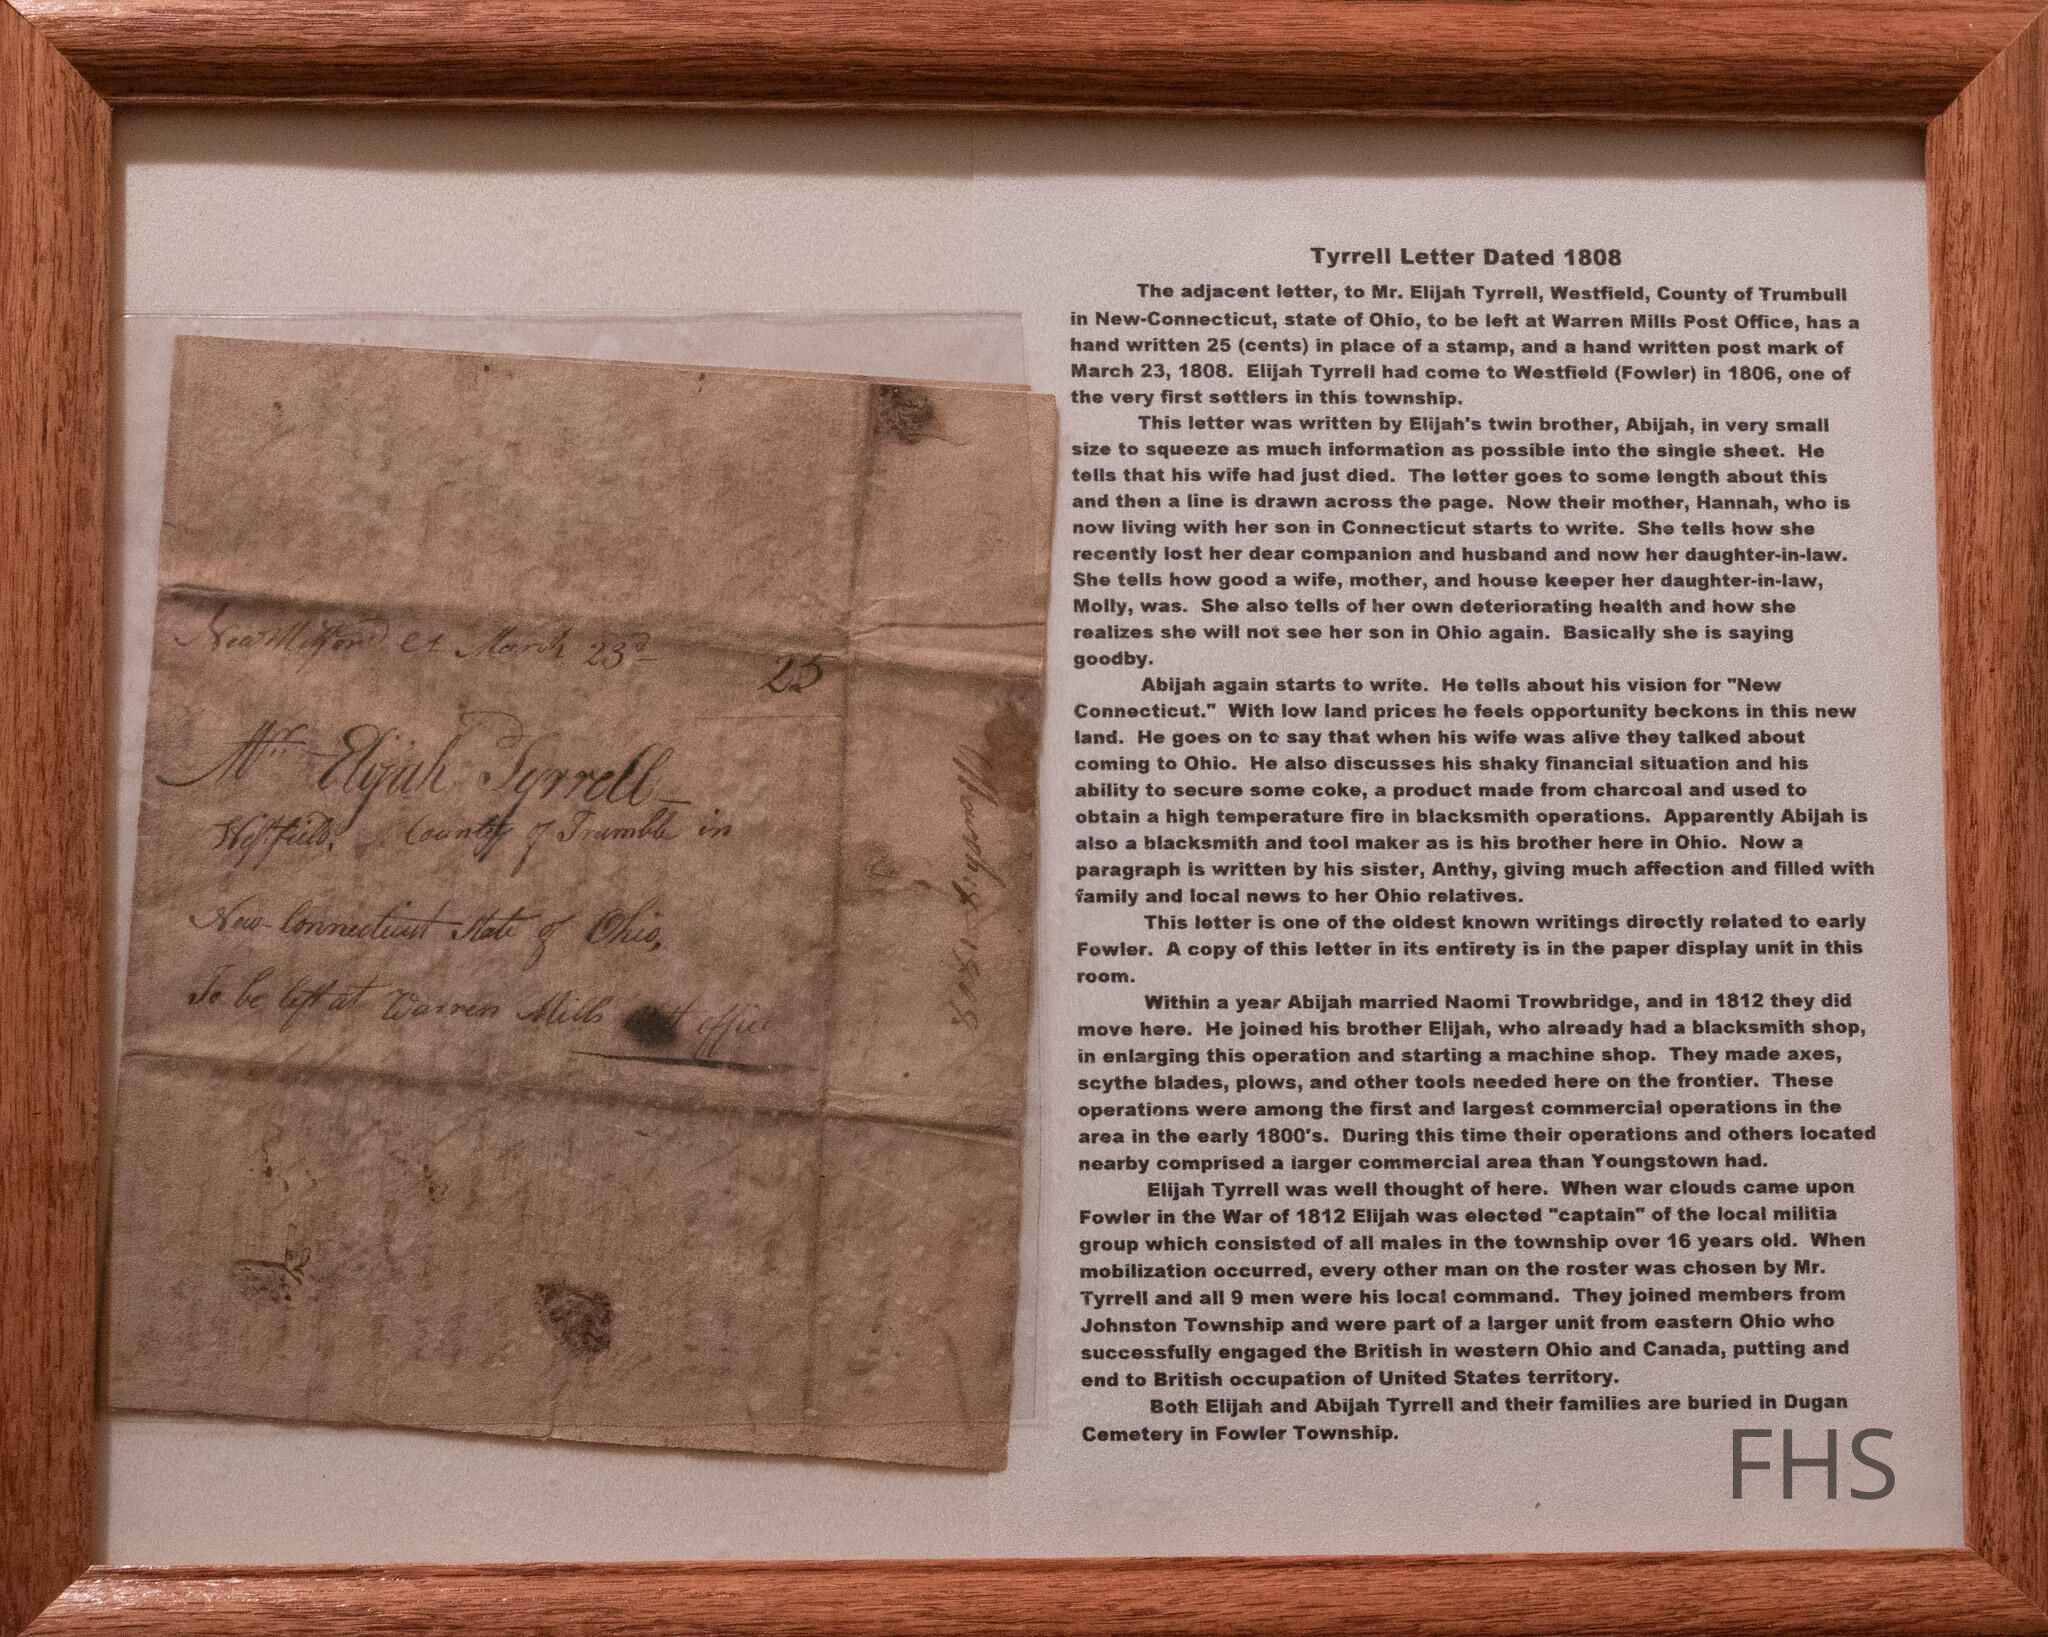 New Milford Ct March 23d
25
Mr. Elijah Tyrrell
Westfield, County of Trumble in
New-Connecticut State of Ohio,
To be left at Warren Mills office
March 1808
Tyrrell Letter Dated 1808
The adjacent letter, to Mr. Elijah Tyrrell, Westfield, County of Trumbull
in New-Connecticut, state of Ohio, to be left at Warren Mills Post Office, has a
hand written 25 (cents) in place of a stamp, and a hand written post mark of
March 23, 1808. Elijah Tyrrell had come to Westfield (Fowler) in 1806, one of
the very first settlers in this township.
This letter was written by Elijah's twin brother, Abijah, in very small
size to squeeze as much information as possible into the single sheet. He
tells that his wife had just died. The letter goes to some length about this
and then a line is drawn across the page. Now their mother, Hannah, who is
now living with her son in Connecticut starts to write. She tells how she
recently lost her dear companion and husband and now her daughter-in-law.
She tells how good a wife, mother, and house keeper her daughter-in-law,
Molly, was. She also tells of her own deteriorating health and how she
realizes she will not see her son in Ohio again. Basically she is saying
goodby.
Abijah again starts to write. He tells about his vision for "New
Connecticut." With low land prices he feels opportunity beckons in this new
land. He goes on to say that when his wife was alive they talked about
coming to Ohio. He also discusses his shaky financial situation and his
ability to secure some coke, a product made from charcoal and used to
obtain a high temperature fire in blacksmith operations. Apparently Abijah is
also a blacksmith and tool maker as is his brother here in Ohio. Now a
paragraph is written by his sister, Anthy, giving much affection and filled with
family and local news to her Ohio relatives.
This letter is one of the oldest known writings directly related to early
Fowler. A copy of this letter in its entirety is in the paper display unit in this
room.
Within a year Abijah married Naomi Trowbridge, and in 1812 they did
move here. He joined his brother Elijah, who already had a blacksmith shop,
in enlarging this operation and starting a machine shop. They made axes,
scythe blades, plows, and other tools needed here on the frontier. These
operations were among the first and largest commercial operations in the
area in the early 1800's. During this time their operations and others located
nearby comprised a larger commercial area than Youngstown had.
Elijah Tyrrell was well thought of here. When war clouds came upon
Fowler in the War of 1812 Elijah was elected "captain" of the local militia
group which consisted of all males in the township over 16 years old. When
mobilization occurred, every other man on the roster was chosen by Mr.
Tyrrell and all 9 men were his local command. They joined members from
Johnston Township and were part of a larger unit from eastern Ohio who
successfully engaged the British in western Ohio and Canada, putting and
end to British occupation of United States territory.
Both Elijah and Abijah Tyrrell and their families are buried in Dugan
Cemetery in Fowler Township.
FHS